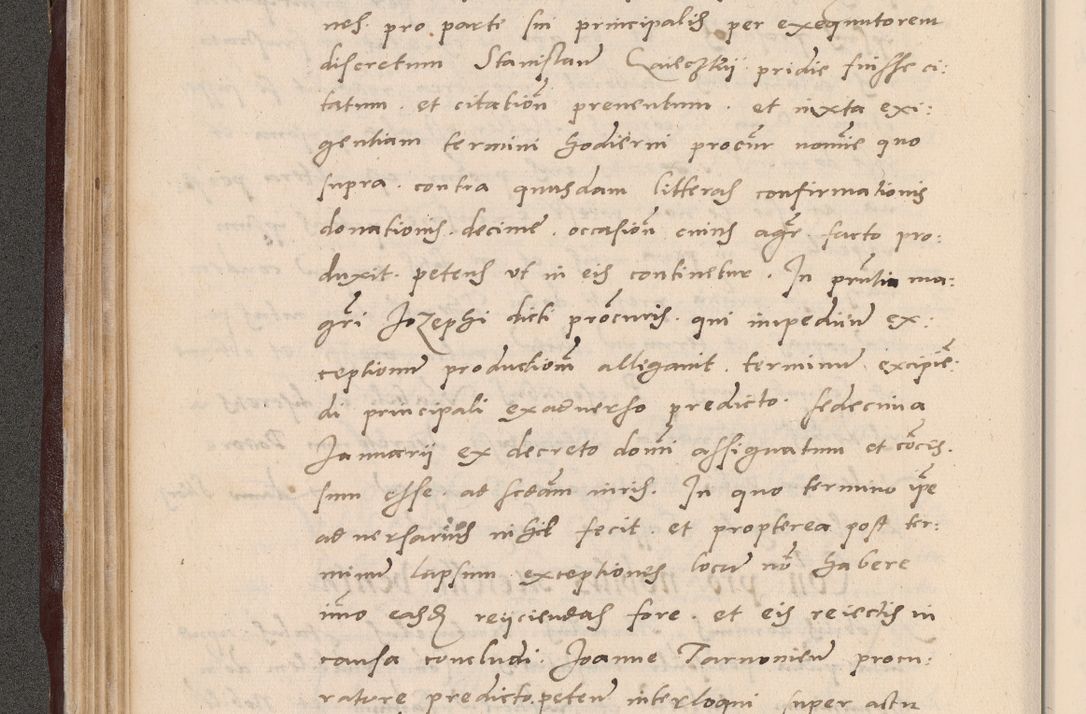 nes. pro parte sui principalis per exequutorem
discretum Stanislaū pridie fuisse ci:
tatum. et citationē preuentum. et iuxta exi:
gentiam termini hodierni procūr nomīe quo
supra. contra quasdam litteras confirmationis
donationis. decime. occasionē cuius agr̄ facto pro:
duxit. petens vt in eis continetur. In prn̄tia ma:
gr̄i Jozephi dicti procūris. qui impediuit ex:
ceptionum productionē alligauit. terminum excipiē:
di principali exaduerso predicto. sedecima
Januarij ex decreto domī assignatum et cōcis.
sum esse. ad sedam iuris. In quo termino ip̄e
aduersarius nihil fecit. et propterea post ter:
minum lapsum exceptiones locum nō habere
īmo easdē reijciendas fore. et eis reiectis in
causa concludi. Joanne Tarnouieū procu:
ratore predicto. petentē interloqui super actu